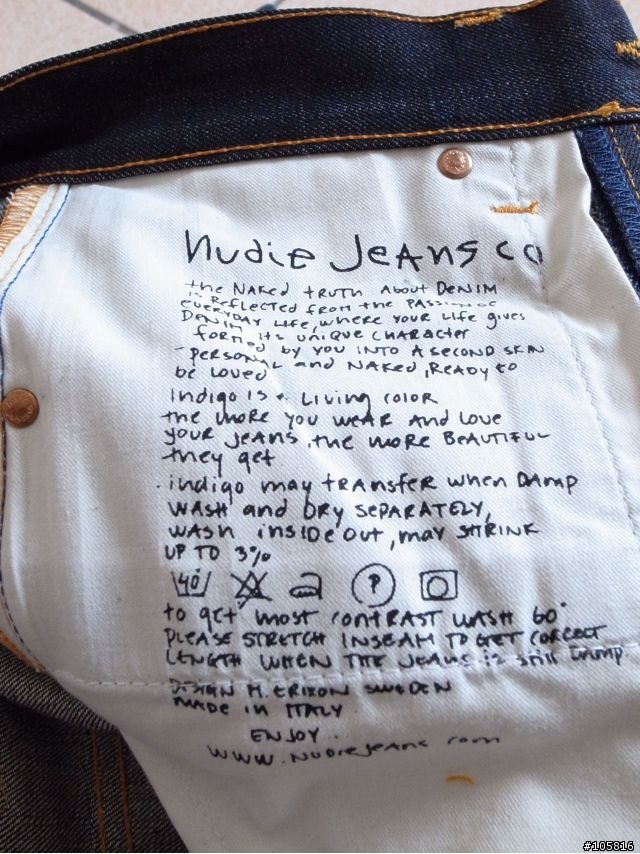 Nudie Jeans co
the Naked truth About Denim
is Reflected from the Passion of
everyday life, where your life gives
Denim its unique character
formed by you into a second skin
- personal and naked, ready to
be loved
Indigo is a living color
the more you wear and love
your jeans, the more beautiful
they get
. indigo may transfer when Damp
wash and Dry separately,
wash inside out, may shrink
up to 3%
40 P
to get most contrast wash 60°
please stretch inseam to get correct
length when the jeans is still damp
Design M. Erixon Sweden
made in Italy
Enjoy.
www.nudiejeans.com
#105816